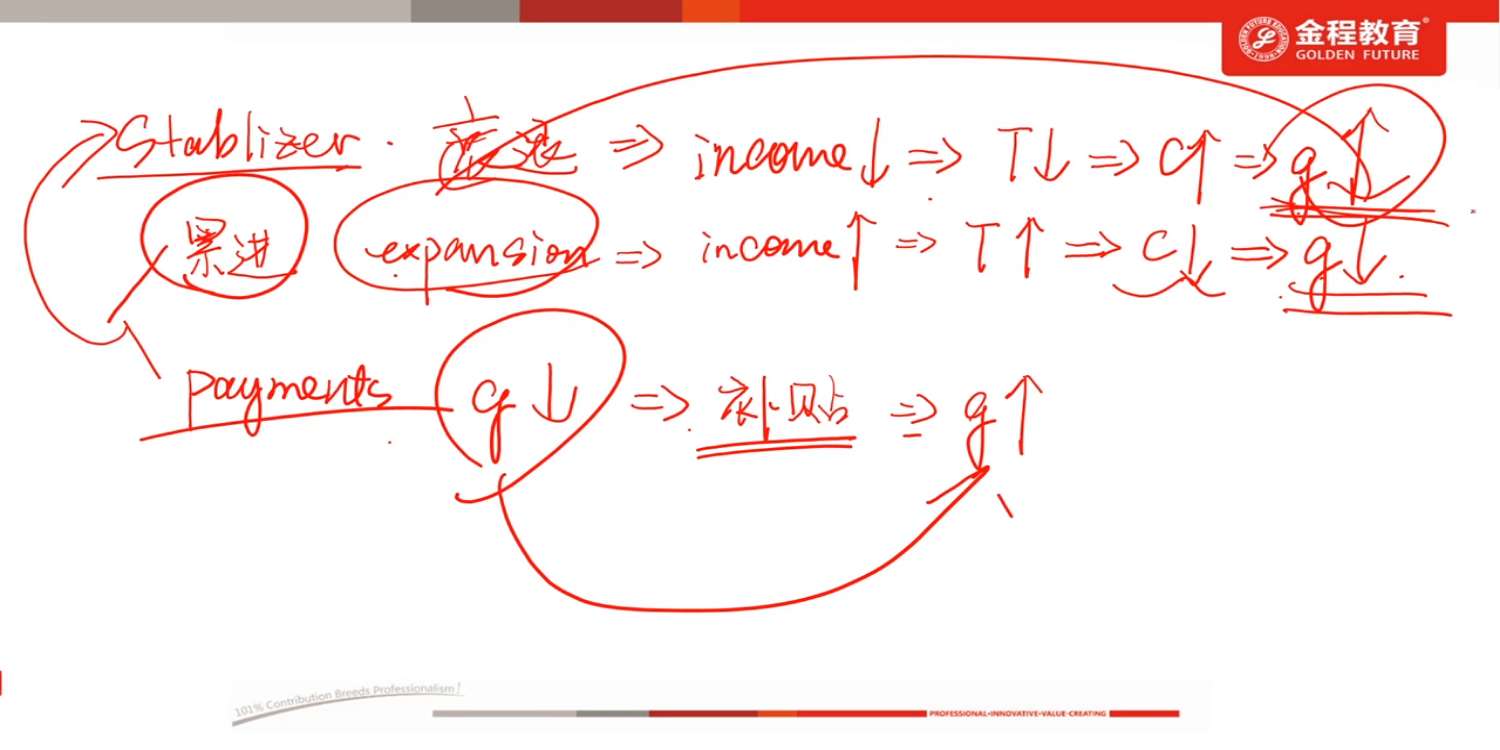 金程教育
GOLDEN FUTURE
Stablizer. 衰退 => income↓ => T↓ => C↑ => g↑
累进 expansion => income↑ => T↑ => C↓ => g↓.
payments g↓ => 补贴 => g↑
101% Contribution Breeds Professionalism!
PROFESSIONAL•INNOVATIVE•VALUE-CREATING